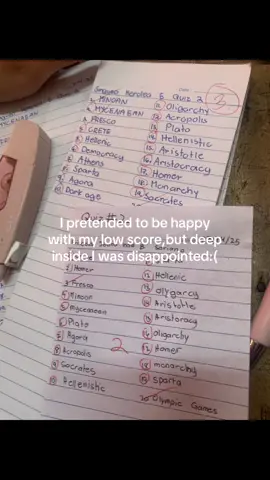 QUIZ 3
3
1. MINOAN
2. MYCENAEAN
3. FRESCO
5. CRETE
6. Hellenic
6. Democracy
7. Athens
8. Sparta
9. Agora
10. Dark age
11. Oligarchy
12. Acropolis
13. Plato
14. Hellenistic
15. Aristotle
16. Aristocracy
17. Homer
18. Monarchy
19. Socrates
I pretended to be happy
with my low score,but deep
inside I was disappointed:(
/25
3 Fresco
4 Minoan
5 mycenaean
6 Plato
Agora
Acropolis
Socrates
10 Hellenistic
2
12 Hellenic
13 Olygarcy
14 Aristotle
15 Aristoracy
16 oligarchy
17 Homer
18 monarchy
19 sparta
20 Olympic Games